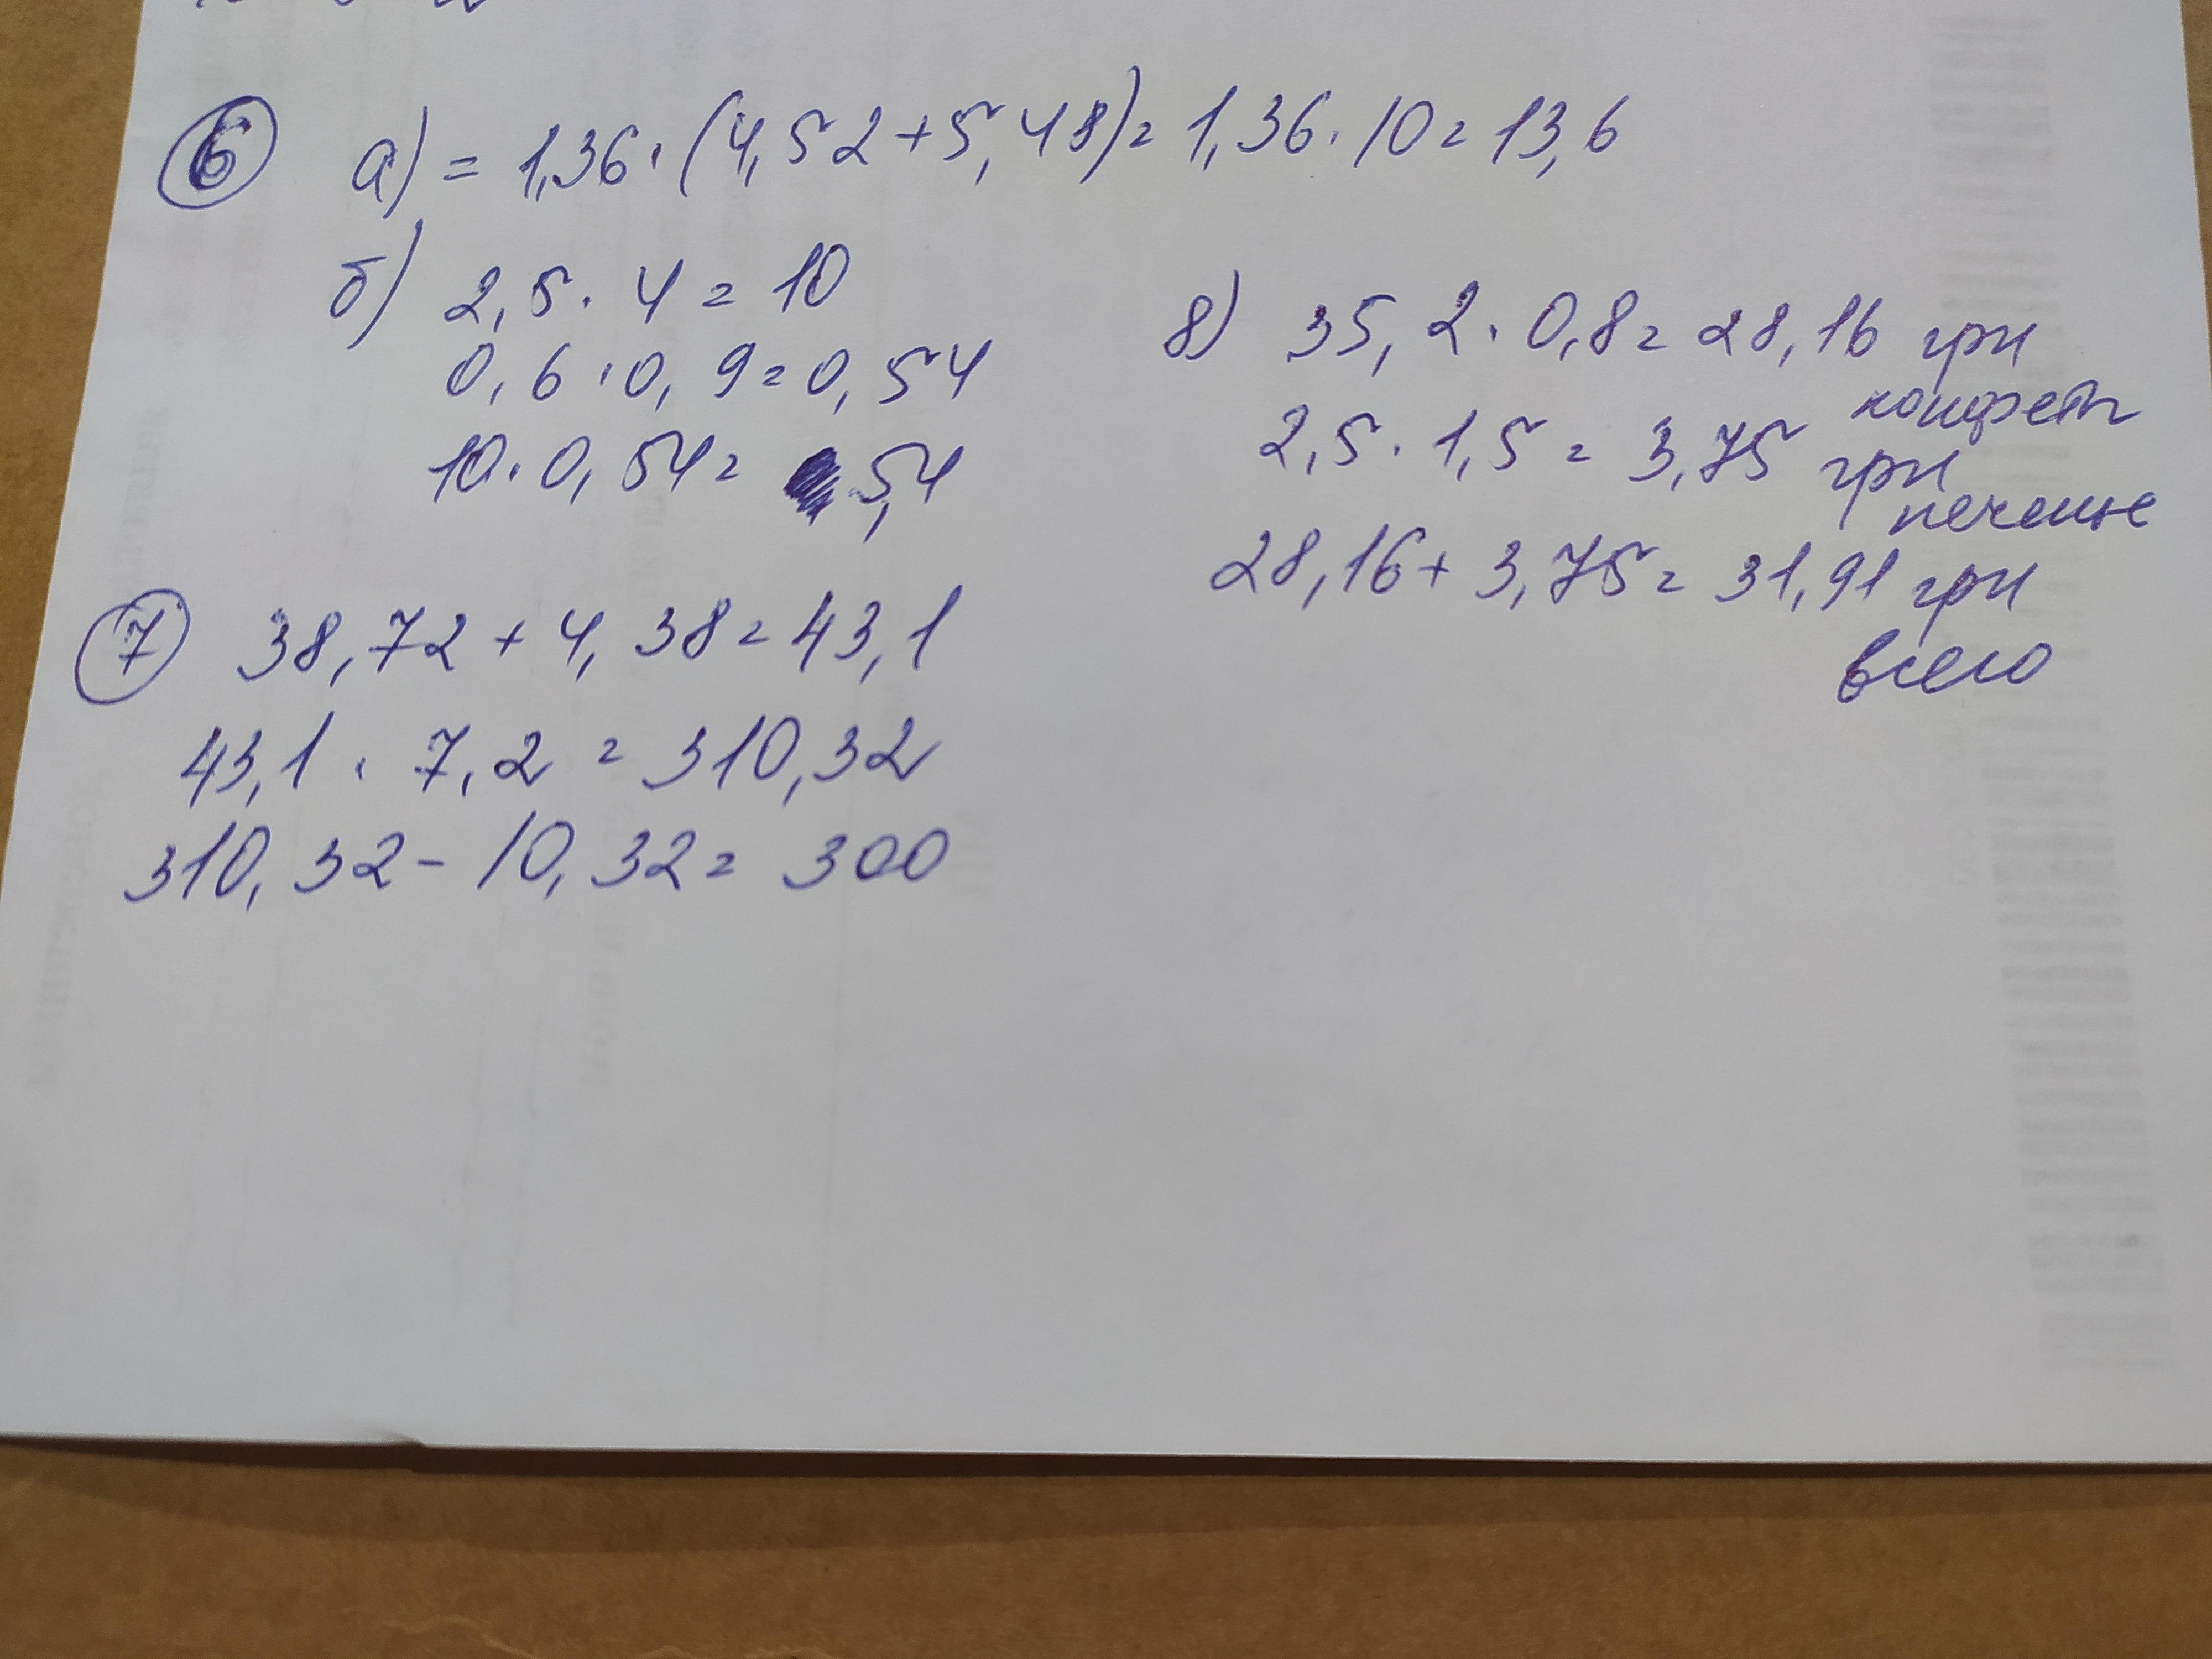 6 а) = 1,36 · (4,52 + 5,48) = 1,36 · 10 = 13,6
б) 2,5 · 4 = 10
0,6 · 0,9 = 0,54
10 · 0,54 = 5,4
7 38,72 + 4,38 = 43,1
43,1 · 7,2 = 310,32
310,32 - 10,32 = 300
8) 35,2 · 0,8 = 28,16 грн
конфеты
2,5 · 1,5 = 3,75 грн
печенье
28,16 + 3,75 = 31,91 грн
всего